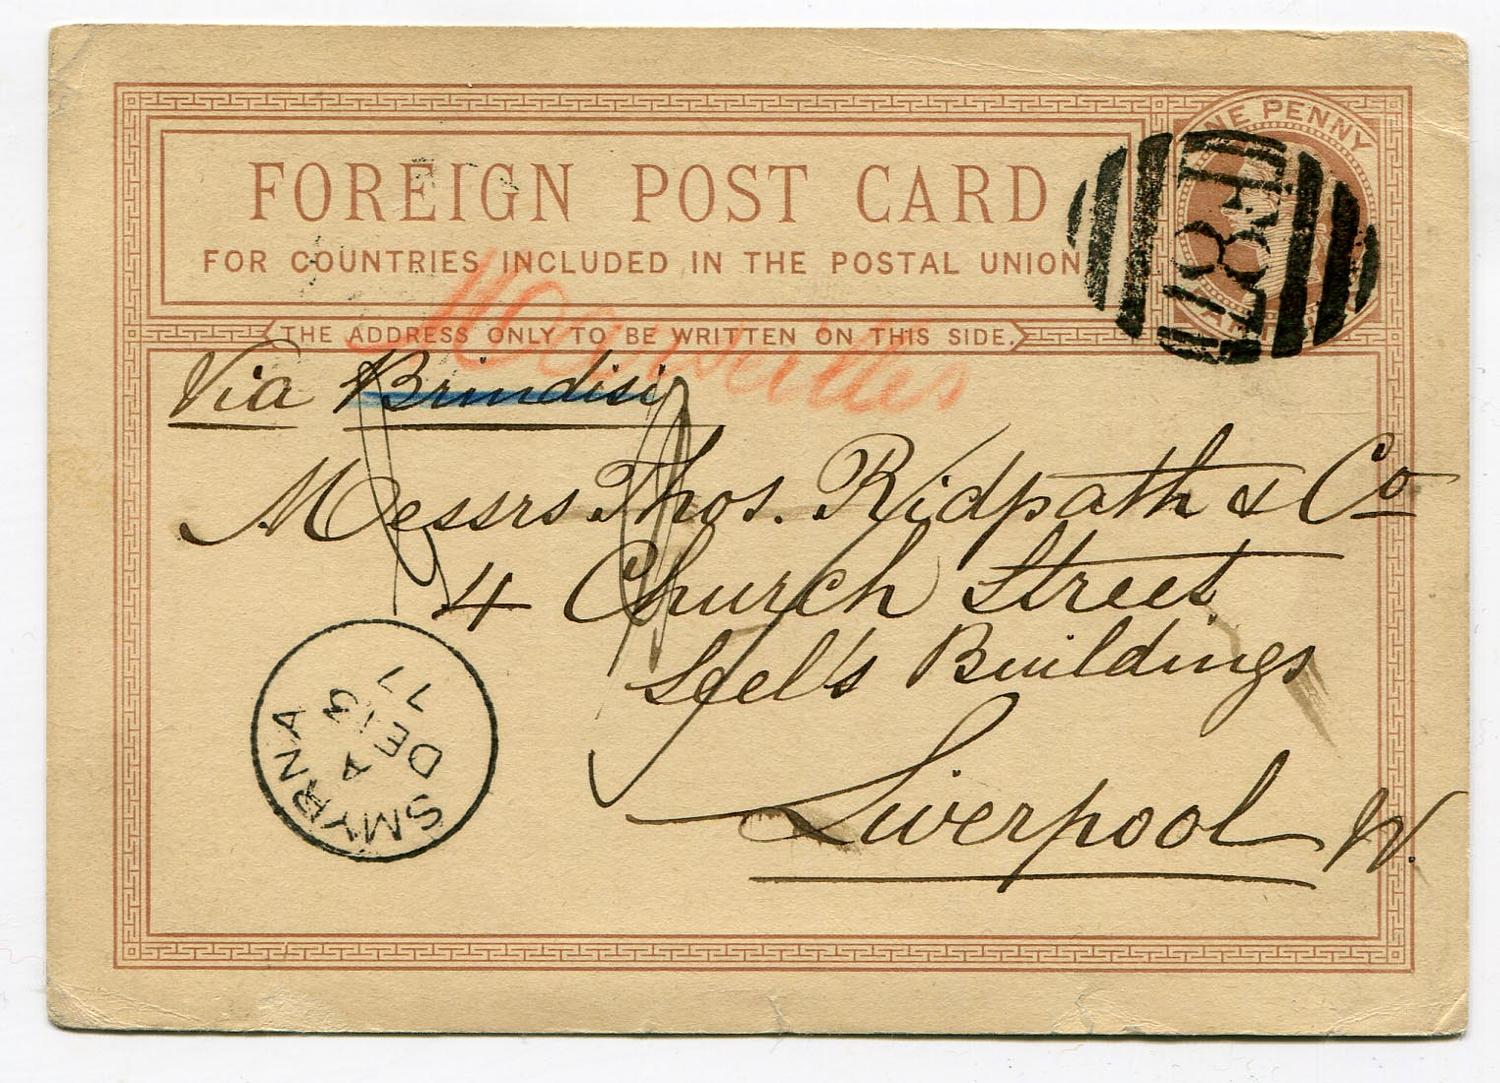 FOREIGN POST CARD
FOR COUNTRIES INCLUDED IN THE POSTAL UNION
THE ADDRESS ONLY TO BE WRITTEN ON THIS SIDE.
NE PENNY
F87
Marseilles
Via Brindisi
Messrs Thos. Ridpath & Co
4 Church Street
Seel's Buildings
Liverpool W.
SMYRNA
A
DE 13
77